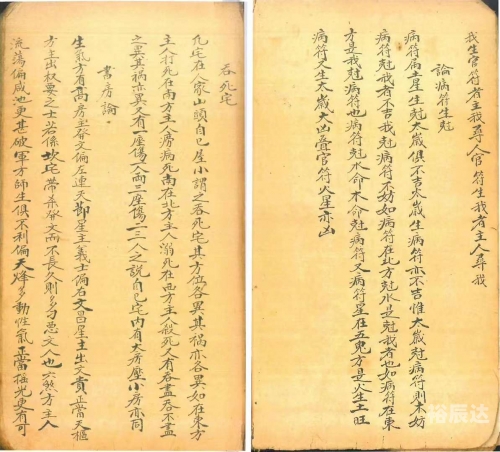 我生官符者主我尋人官符生我者主人尋我
論病符生尅
病符属土星生尅太歲俱不吉太歲生病符亦不吉惟太歲尅病符則木妨
病符尅我者不吉我尅病符不妨如病符在北方尅水是尅我者也如病符在東
方是我尅病符也病符尅水命木命尅病符又病符星在五鬼方是火生土旺
病符又生太歲大凶叠官符火星亦凶
吞死宅
凡宅在人家山頭自己屋小謂之吞死宅其方位各異其禍亦各異如在東方
主人打死在南方主人癆病死尚在北方主人溺死在西方主人殺死人有吞盡吞不盡
之異其禍亦異又有一座傷一人兩三座傷二三人之說自己宅內有大房壓小房亦同
書房論
生氣方有高房主發文偏左連天罡星主義士偏右文昌星主出文貴正當天樞
方主出权要之士若係坎宅帶杀發文而不長久則多勾惡文人也六煞方主人
流蕩偏咸池更甚破軍方師生俱不利偏天烽多動性氣正當極光更有可
裕辰达